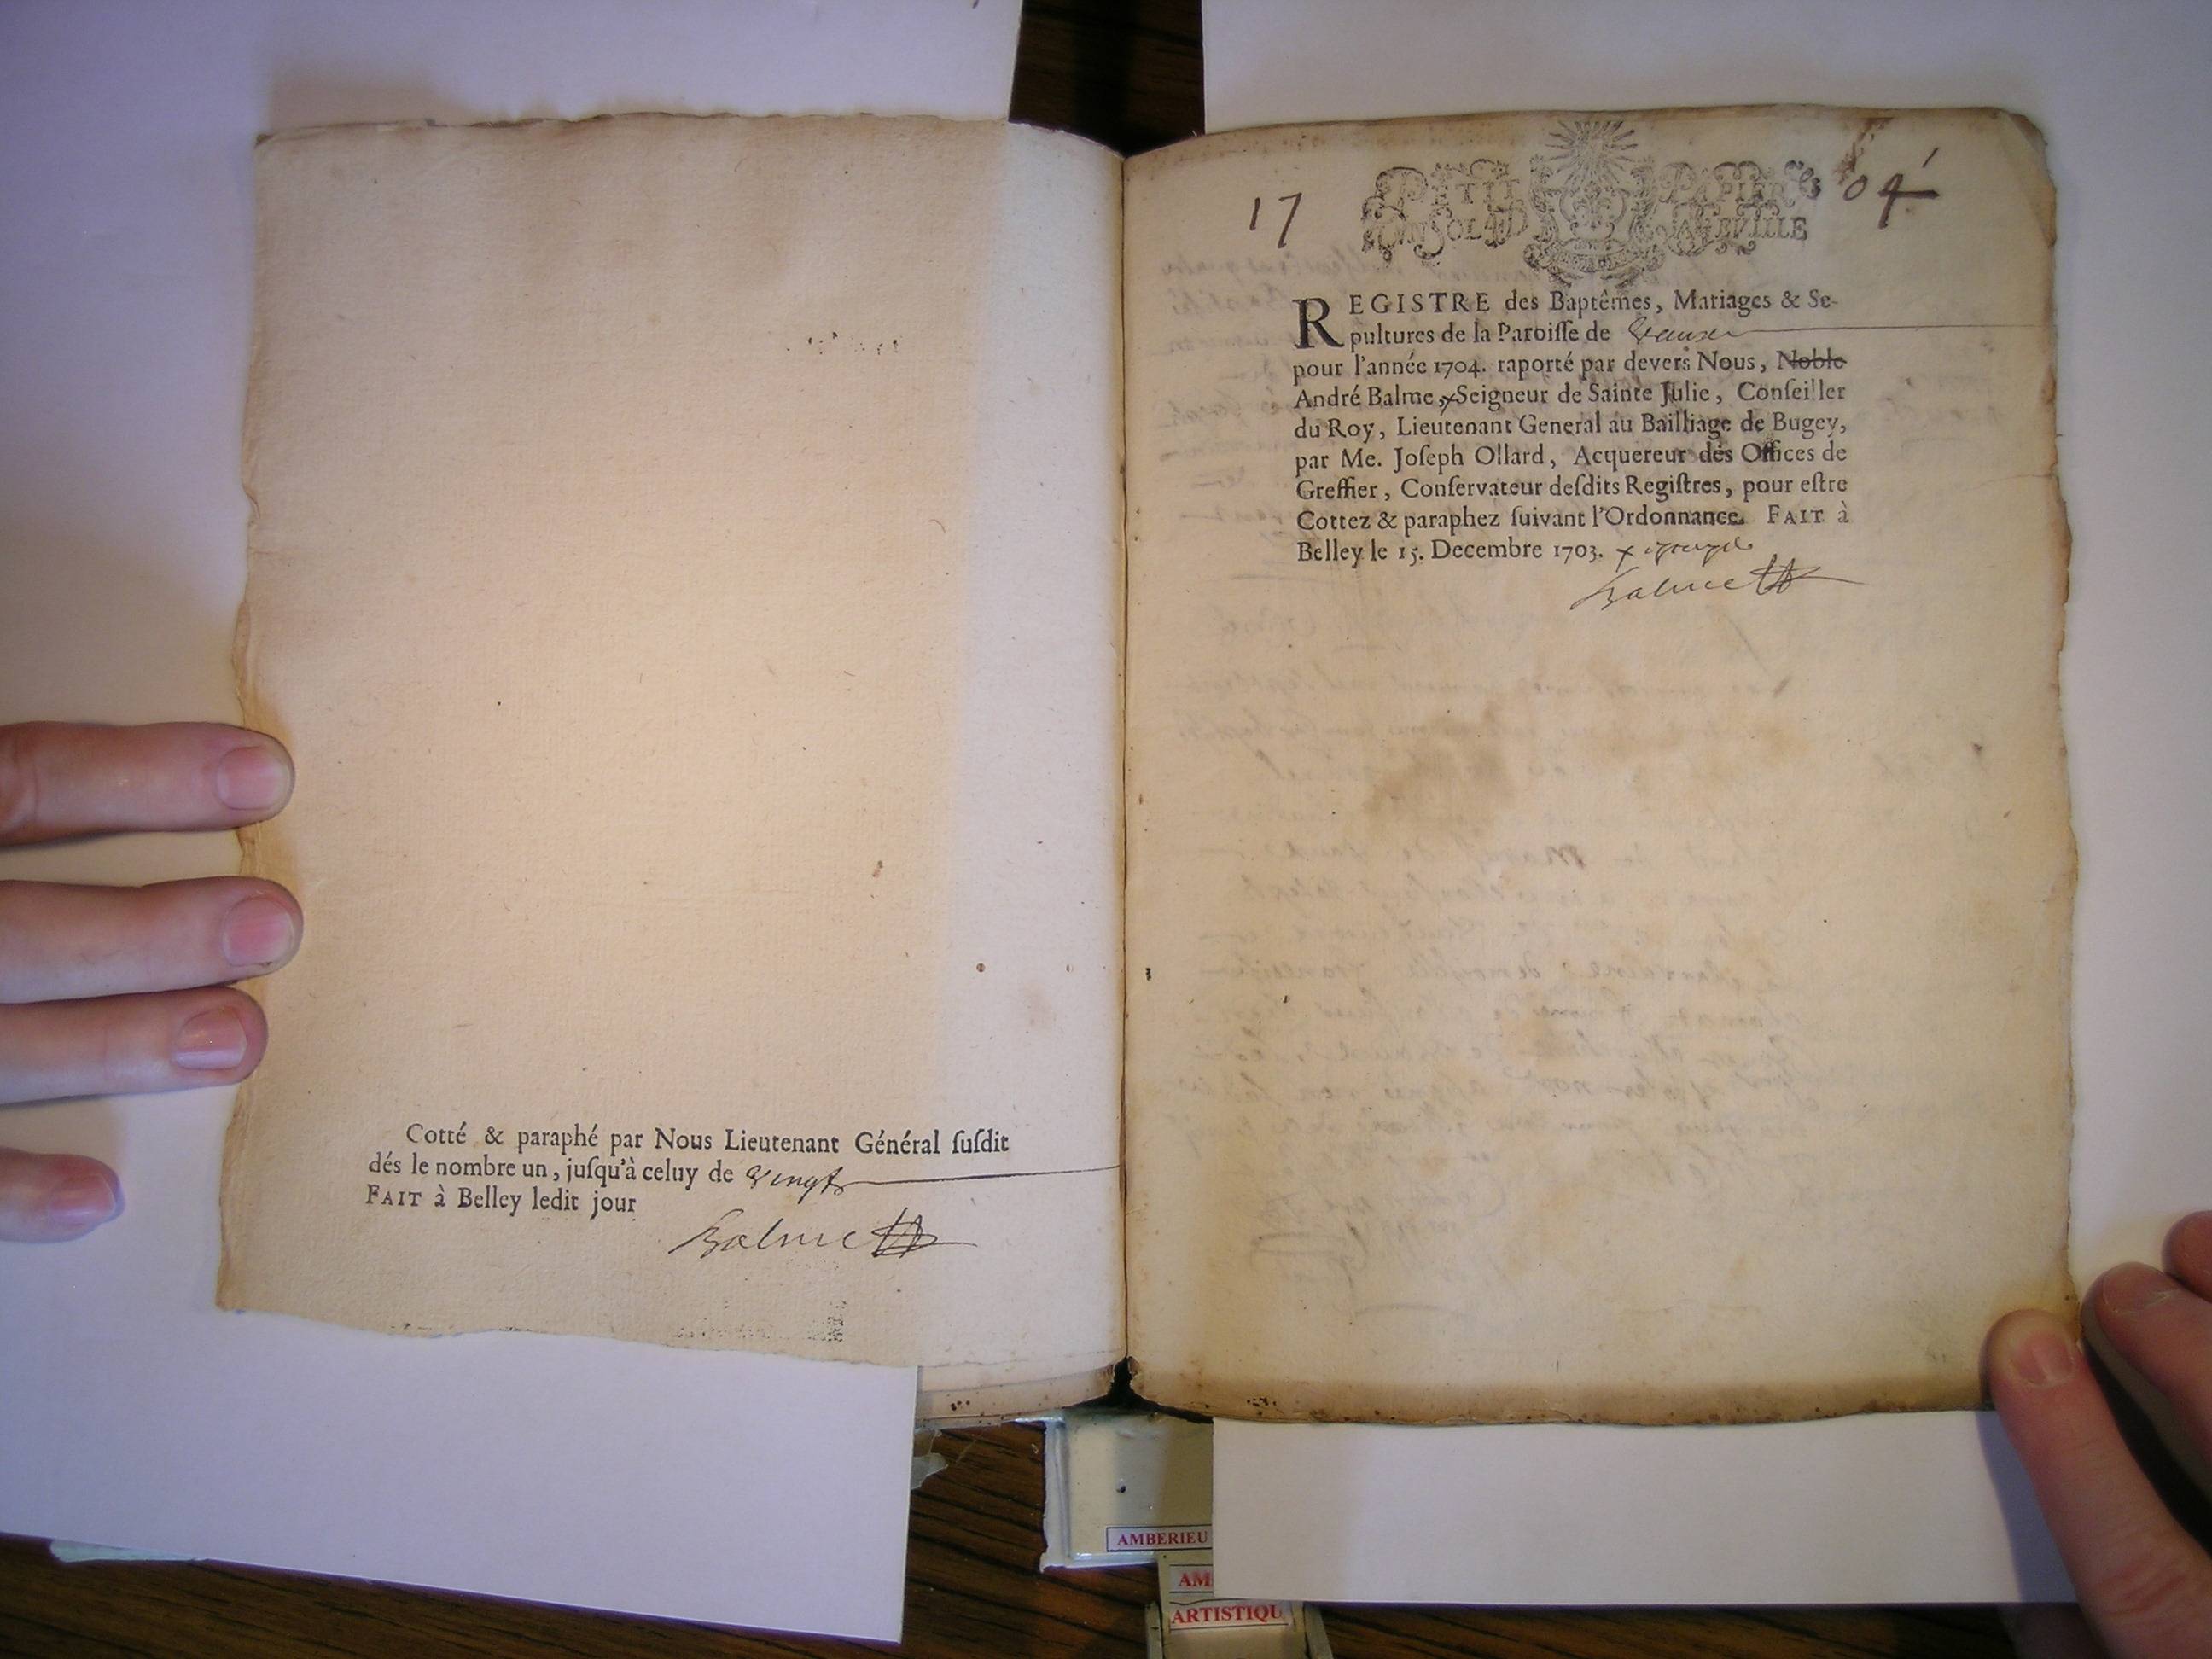 Cotté & paraphé par Nous Lieutenant Général ſuſdit
dés le nombre un, juſqu'à celuy de vingt
FAIT à Belley ledit jour
Balme
17 04
PETIT PAPIER
REGISTRE des Baptêmes, Mariages & Se-
pultures de la Paroiſſe de
pour l'année 1704. raporté par devers Nous, Noble
André Balme, Seigneur de Sainte Julie, Conſeiller
du Roy, Lieutenant General au Bailliage de Bugey,
par Me. Joſeph Ollard, Acquereur des Offices de
Greffier, Conſervateur deſdits Regiſtres, pour eſtre
Cottez & paraphez ſuivant l'Ordonnance. FAIT à
Belley le 15. Decembre 1703.
Balme
AMBERIEU
AM
ARTISTIQU